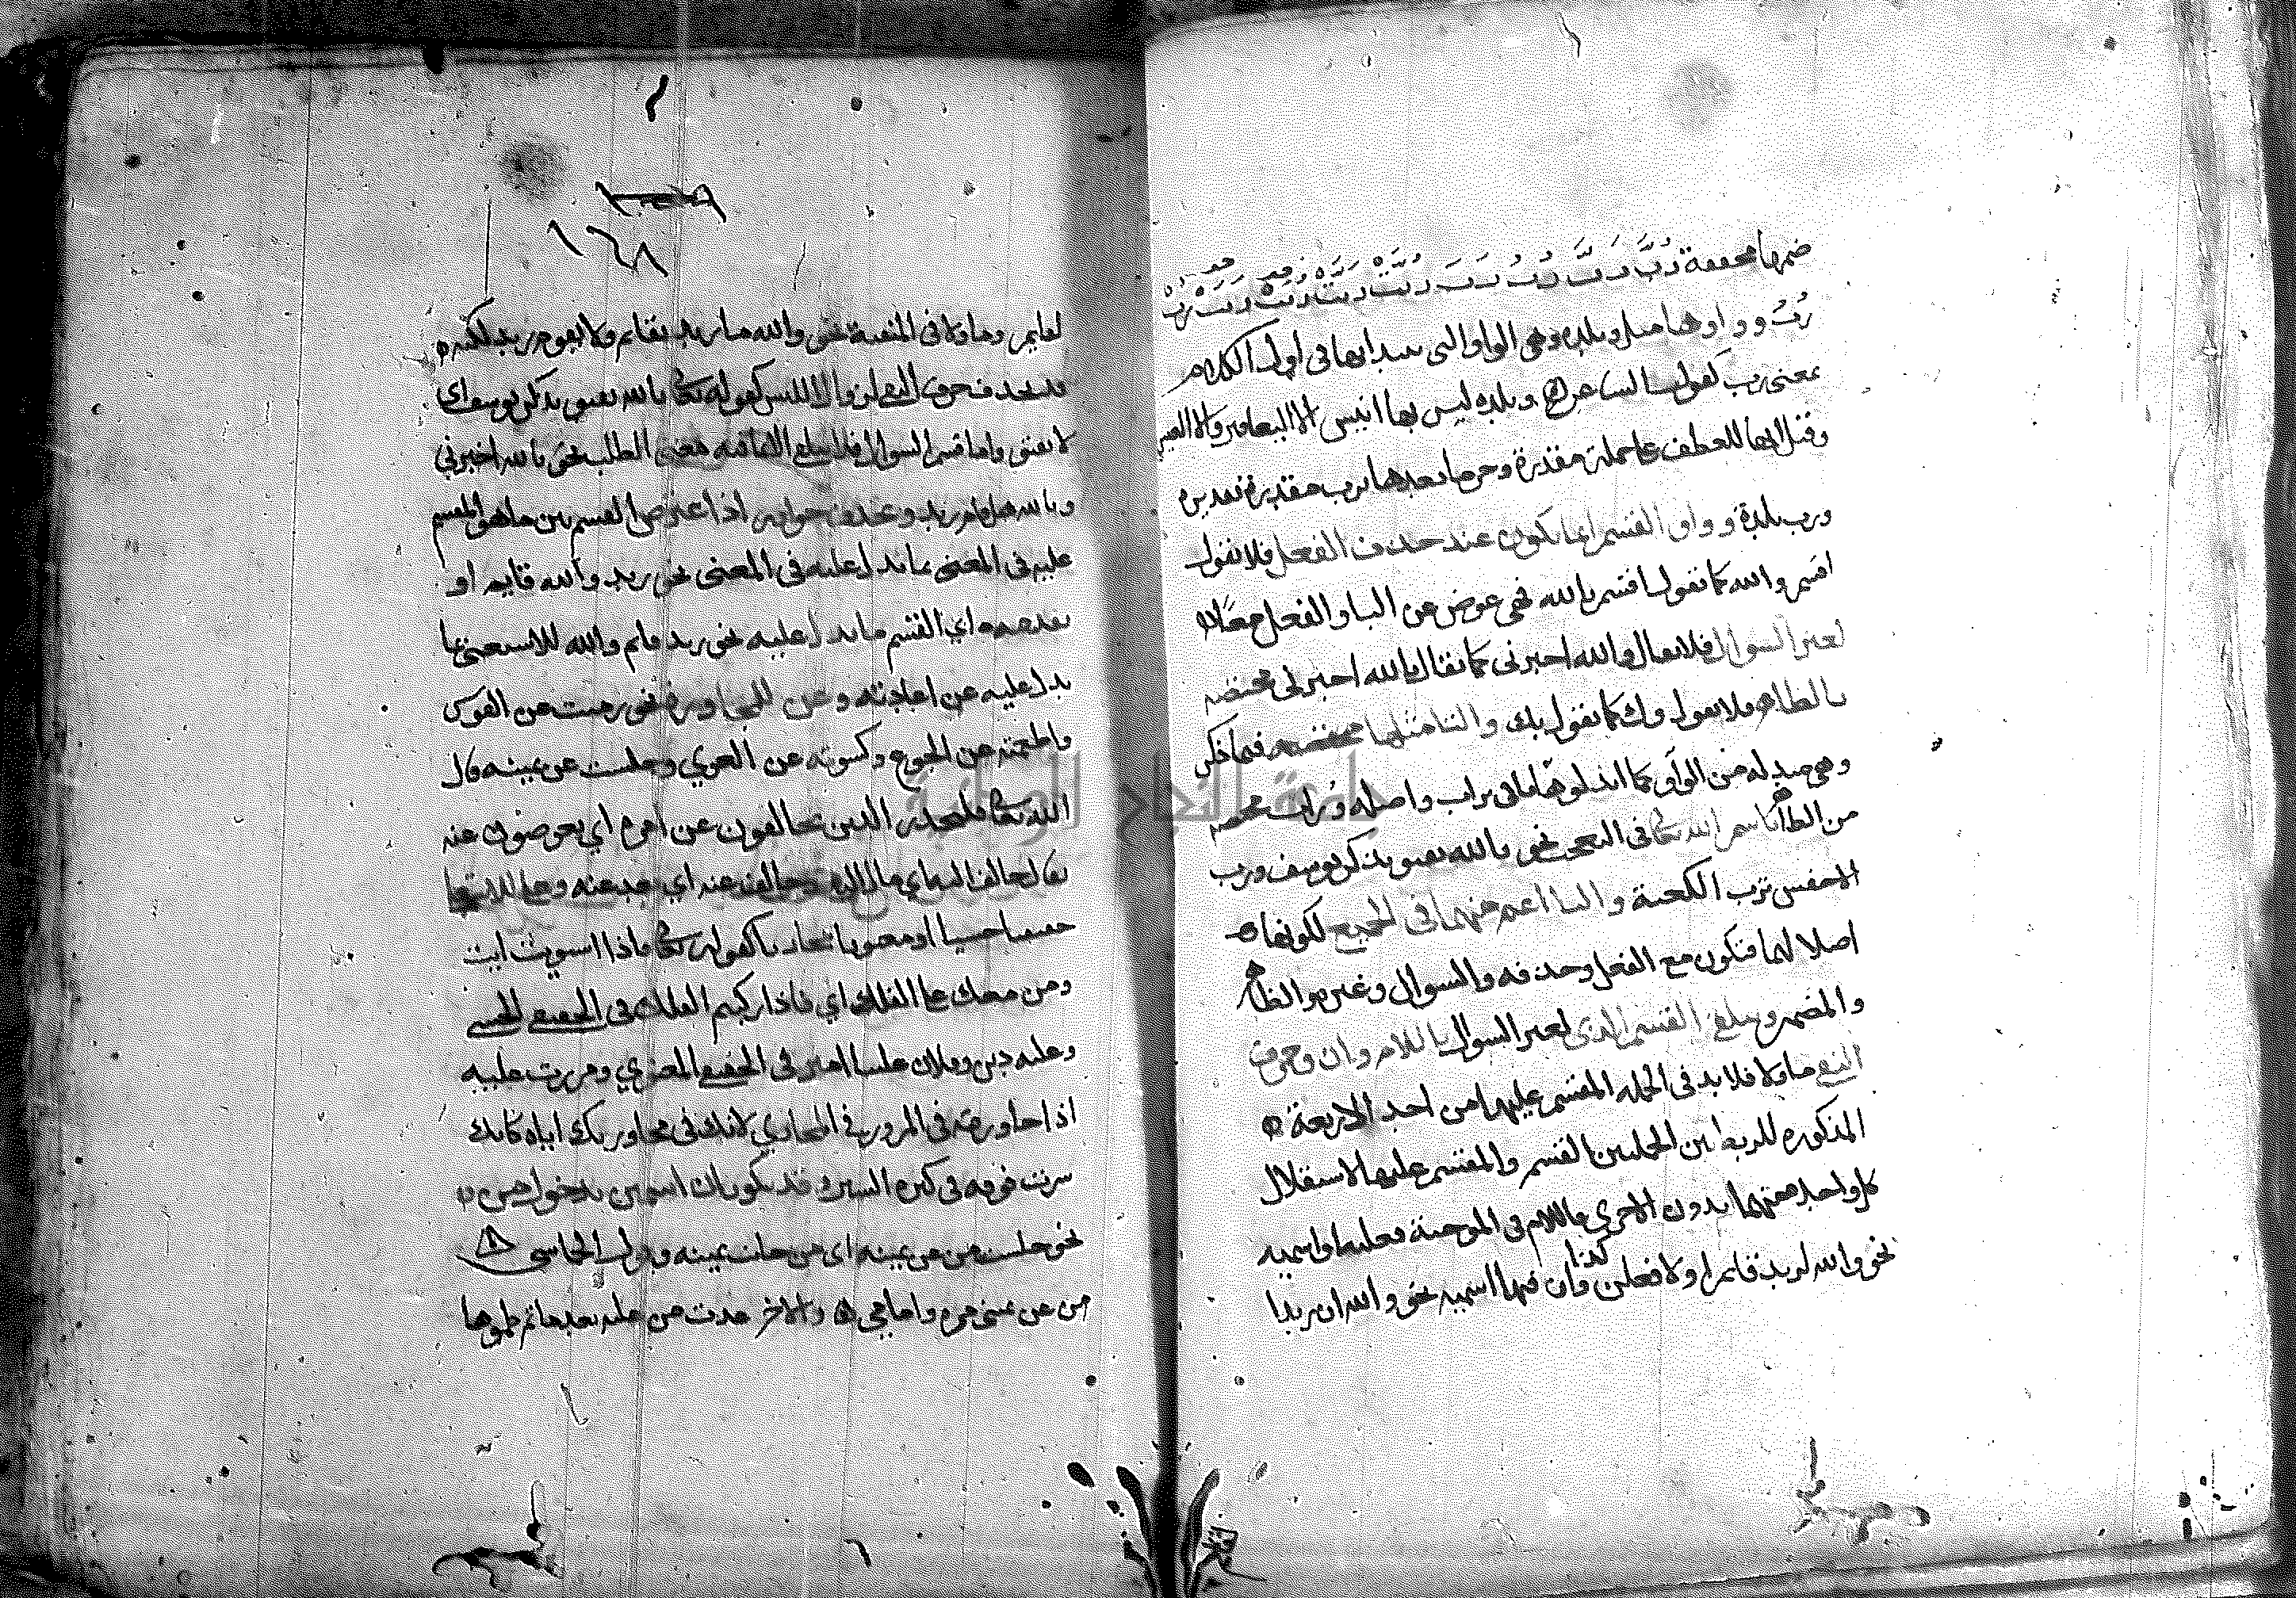 ضمها مخففة رُبَّ رَبَّ رُبُ رَبَ رُبَّتْ رَبَّتْ رُبَتْ رَبَتْ رُبْ
رُبُ وواوها مثل وبلدة وهي الواو التي يبتدا بها في اول الكلام
بمعنى رب كقول الشاعر وبلدة ليس بها انيس الا اليعافير والا العيس
وقيل انها للعطف على جملة مقدرة وجر ما بعدها برب مقدرة تقديره
ورب بلدة وواو القسم انما يكون عند حذف الفعل فلا تقول
اقسم والله كما تقول اقسم بالله فهي عوض عن البا والفعل معا لا
لغير السوال فلا يقال والله اخبرني كما يقال بالله اخبرني مختصه
بالظاهر فلا يقول وك كما يقول بك والتا مثلها مختصه فيما ذكر
وهي مبدله من الواو كما ابدلوها في تراب واصله وراب مختصه
من الظاهر باسم الله تعالى في التعجب نحو بالله تفتو تذكر يوسف ورب
الاخفش ترب الكعبة والبا اعم منهما في الجميع لكونها
اصلا لهما فتكون مع الفعل وحذفه والسوال وغيره والظاهر
والمضمر ويتلقى القسم الذي لغير السوال باللام وان وحرف
النفي ما ولا فلا بد في الجمله المقسم عليها من احد الاربعة
المذكوره للربط بين الجملتين القسم والمقسم عليها لاستقلال
كل واحد منهما بدون الاخرى فاللام في الموجبة فعليه او اسميه
نحو والله لزيد قايم او لافعلن كذا وان فيها اسميه نحو والله ان زيدا
١٦٨
لقايم وما ولا في المنفية نحو والله ما زيد بقايم ولا يقوم زيد لكنه
قد يحذف حرف النفي لزوال اللبس كقوله تعالى بالله تفتو تذكر يوسف اي
لا تفتو واما قسم السوال فلا يتلقى الا بما فيه معنى الطلب نحو بالله اخبرني
وبالله هل قام زيد ويحذف جوابه اذا اعترض القسم بين ما هو المقسم
عليه في المعنى بما يدل عليه في المعنى نحو زيد والله قايم او
تقدمه اي القسم ما يدل عليه نحو زيد قايم والله للاستغنى بما
يدل عليه عن اعادته وعن للمجاوزة نحو رميت عن القوس
واطعمته عن الجوع وكسوته عن العري وجلست عن يمينه قال
الله تعالى فليحذر الذين يخالفون عن امره اي يعرضون عنه
يقال خالف اليه اي مال اليه وخالف عنه اي بعد عنه وعلى للاستعلا
حقيقيا حسيا او معنويا مجازيا كقوله تعالى فاذا استويت انت
ومن معك على الفلك اي فاذا ركبتم الفلك في الحقيقي الحسي
وعليه دين وفلان علينا امير في الحقيقي المعنوي ومررت عليه
اذا جاوزته في المرور في المجازي لانك في مجاوزتك اياه كانك
سرت فوقه في كثرة السير وقد يكونان اسمين بدخول من
نحو جلست من عن يمينه اي من جانب يمينه وقول الحماسي
من عن يميني مره وامامي والاخر غدت من عليه بعدما تم ظموها